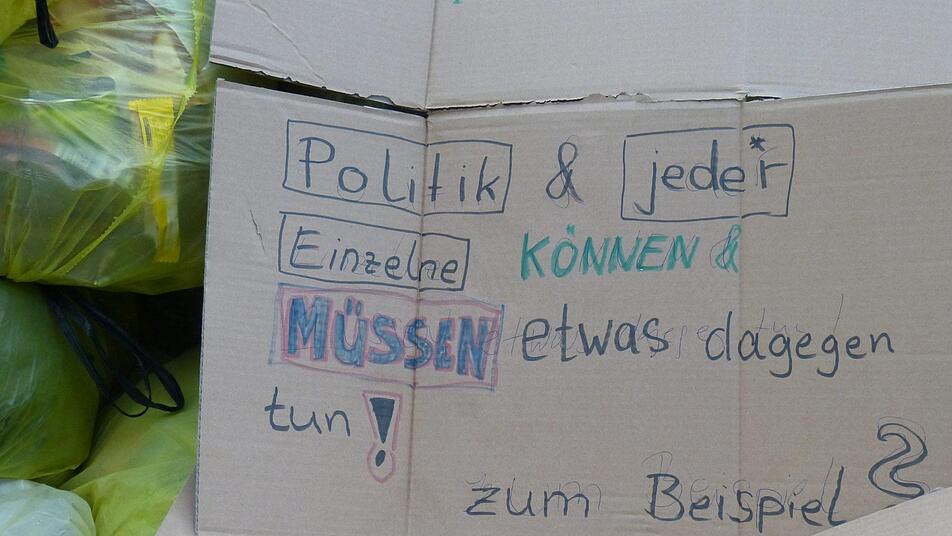 Politik & jede*r
Einzelne KÖNNEN &
MÜSSEN etwas dagegen
tun!
zum Beispiel?